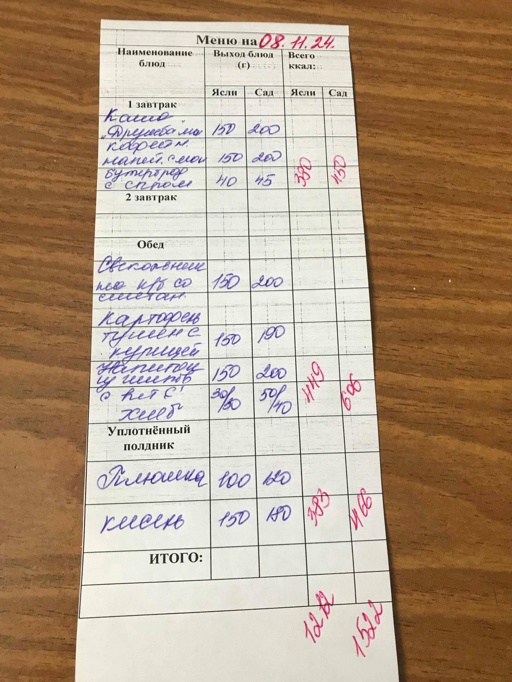 Меню на 08.11.24.
Наименование блюд Выход блюд (г) Всего ккал:
Ясли Сад Ясли Сад
1 завтрак
Каша
"Дружба" мол 150 200
кофейн.
напит. с мол 150 200
бутерброд
с сыром 40 45 380 450
2 завтрак
Обед
Свекольник
на к/б со 150 200
сметан.
Картофель
тушен с 150 190
курицей
Напиток 150 200
из шипов
с вит С 30/30 50/40 449 606
хлеб
Уплотнённый
полдник
Плюшка 100 120
кисель 150 180 383 466
ИТОГО:
1212 1522